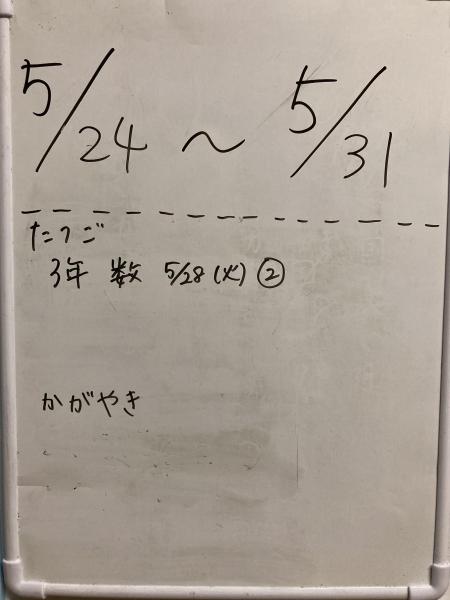 5/24 ~ 5/31
たつご
3年 数 5/28 (火) ②
かがやき